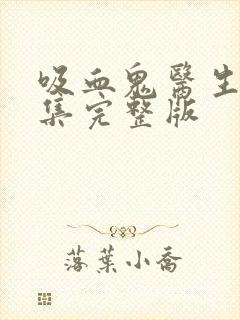 吸血鬼醫生
集完整版
落葉小喬